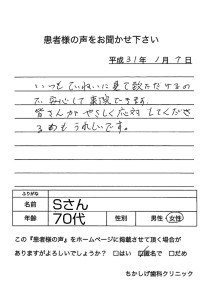 患者様の声をお聞かせ下さい
平成31年1月7日
いつもていねいに見て頂だけるの
で、安心して来院できます。
皆さんがやさしく応対してくださ
るのもうれしいです。
ふりがな
名前 Sさん
年齢 70代 性別 男性・女性
この『患者様の声』をホームページに掲載させて頂く場合が
ありますがよろしいでしょうか？ □はい ☑匿名で □だめ
ちかしげ歯科クリニック